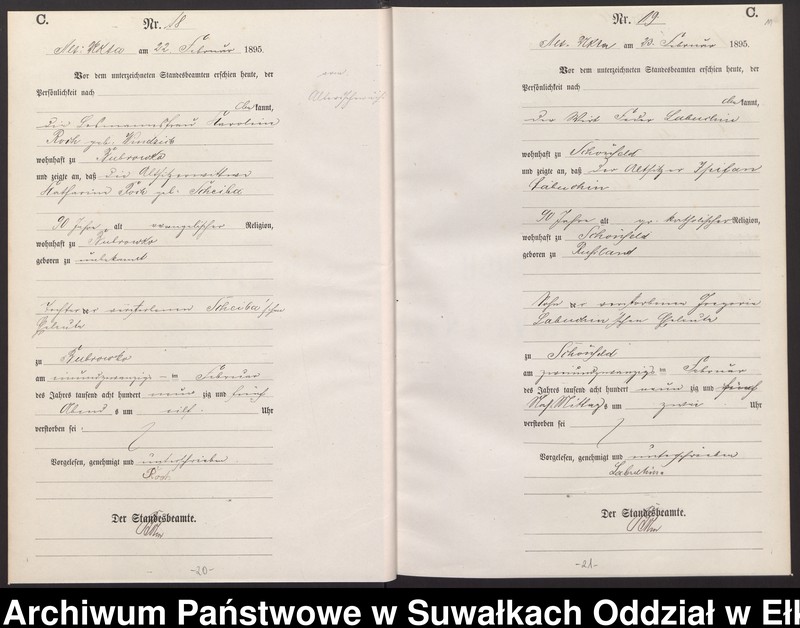 C.
Nr. 18
Alt-Ukta am 22 Februar 1895.
Vor dem unterzeichneten Standesbeamten erschien heute, der
Persönlichkeit nach
bekannt,
die Losmannsfrau Karoline
geb.
wohnhaft zu Kubrowko
und zeigte an, daß die Altsitzerwittwe
Katharina geb. Scheiba
90 Jahre alt evangelischer Religion,
wohnhaft zu Kubrowko
geboren zu unbekannt
Tochter der verstorbenen Scheiba'schen
Eheleute
zu Kubrowko
am einundzwanzig ten Februar
des Jahres tausend acht hundert neun zig und fünf
Abends um elf Uhr
verstorben sei
Vorgelesen, genehmigt und unterschrieben
Der Standesbeamte.
-20-
C.
Nr. 19
Alt-Ukta am 23. Februar 1895.
Vor dem unterzeichneten Standesbeamten erschien heute, der
Persönlichkeit nach
bekannt,
der Wirt Labuschin
wohnhaft zu Schönfeld
und zeigte an, daß der Altsitzer
Labuschin
90 Jahre alt gr. katholischer Religion,
wohnhaft zu Schönfeld
geboren zu Rußland
Sohn der verstorbenen
Eheleute
zu Schönfeld
am zweiundzwanzig ten Februar
des Jahres tausend acht hundert neun zig und fünf
Nachmittags um zwei Uhr
verstorben sei
Vorgelesen, genehmigt und unterschrieben
Der Standesbeamte.
-21-
Archiwum Państwowe w Suwałkach Oddział w Eł